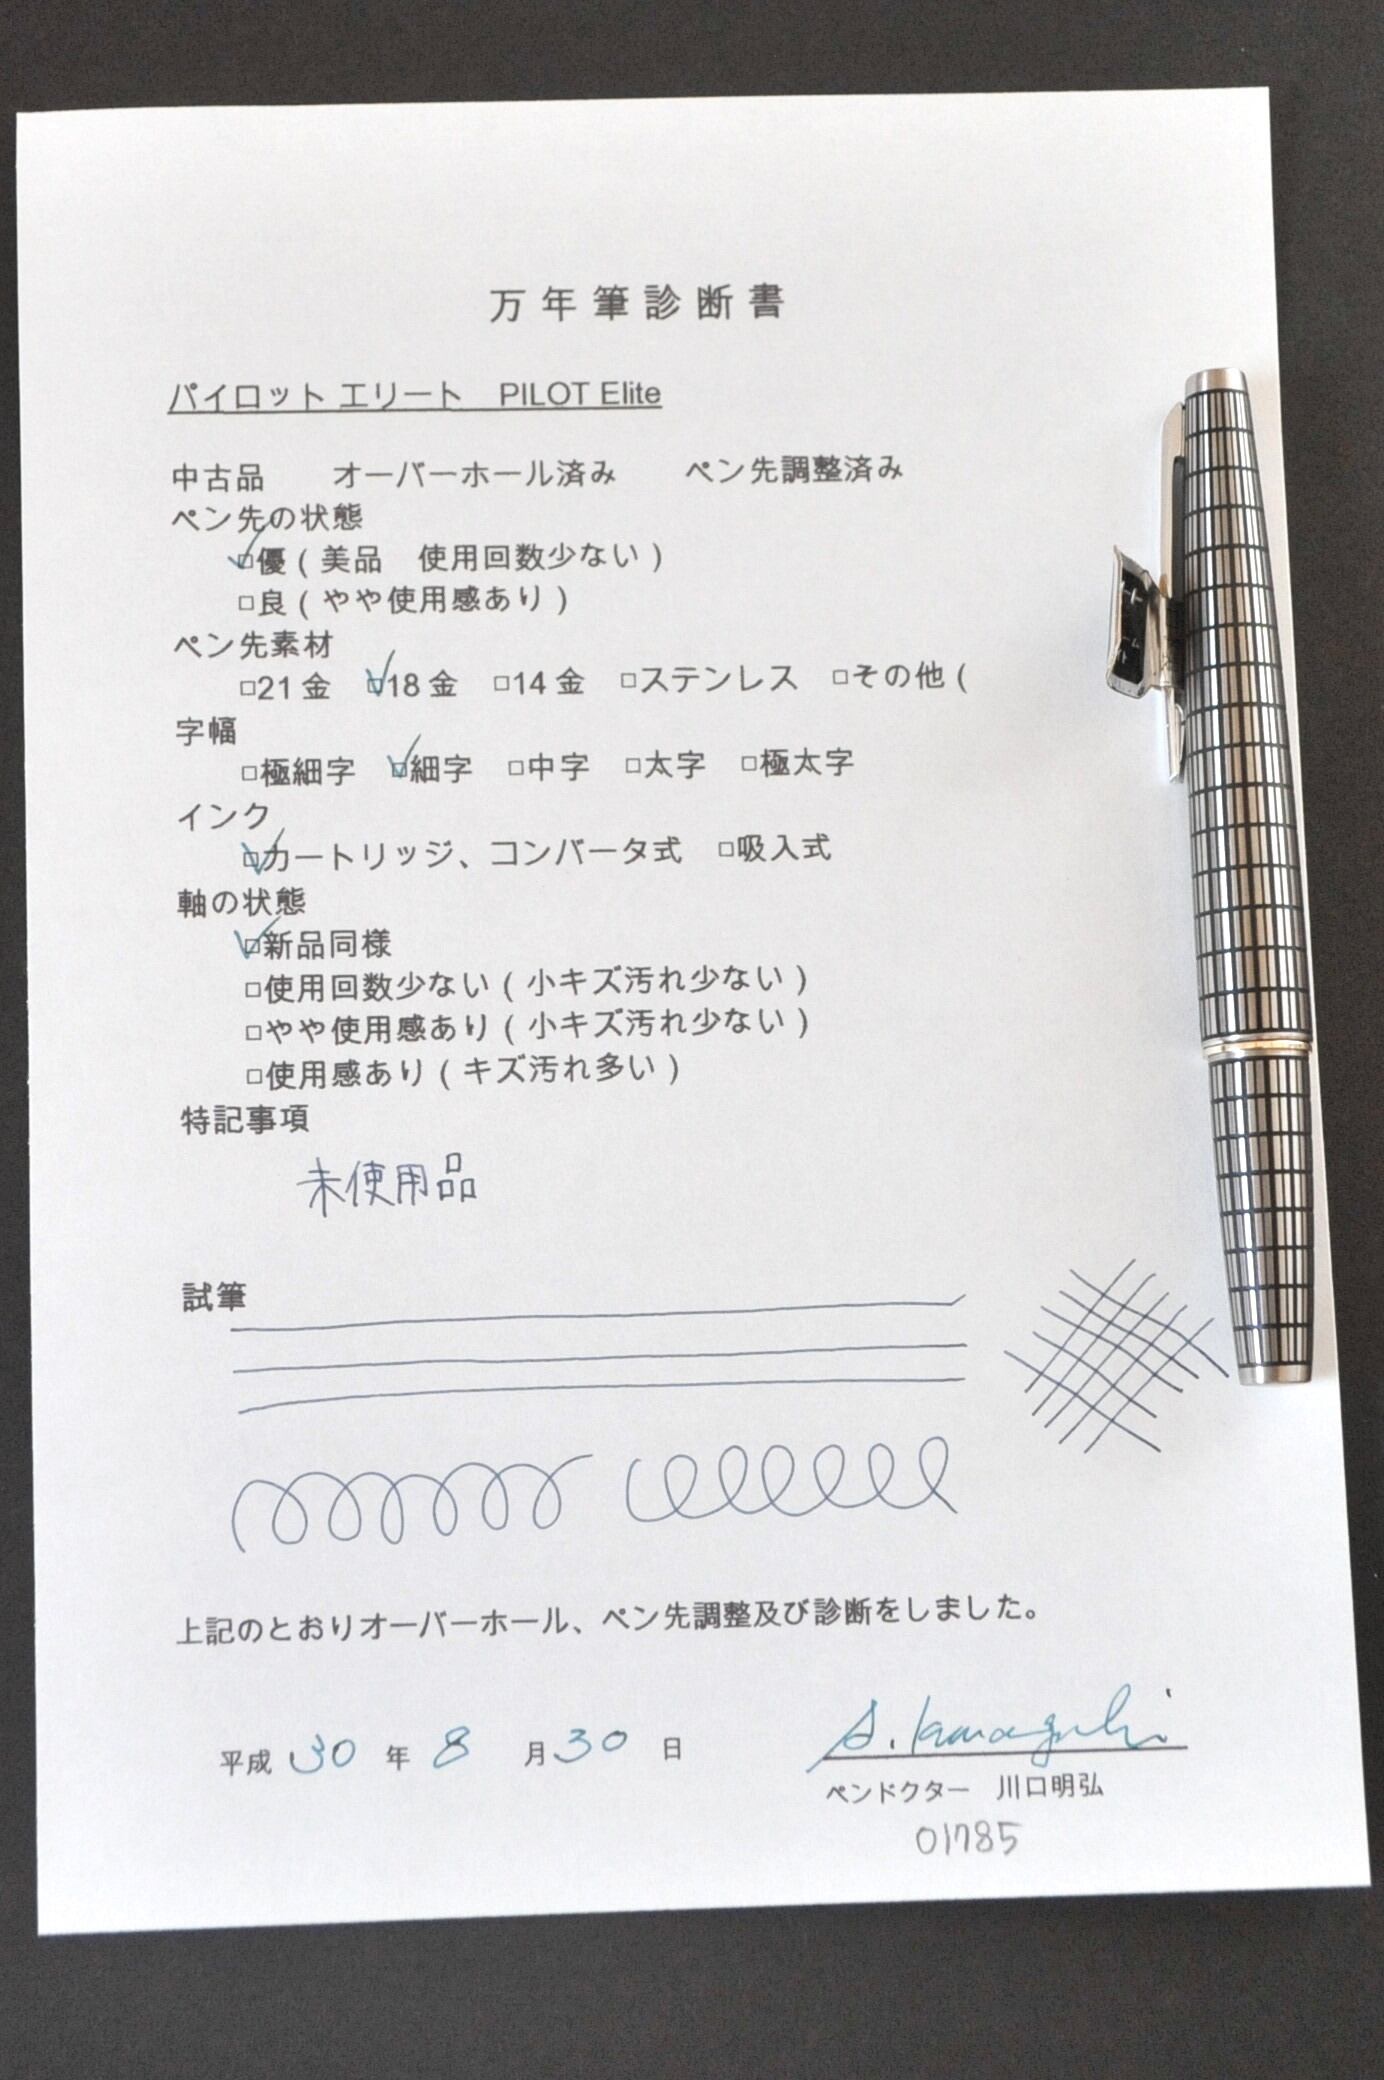 万年筆診断書
パイロット エリート　PILOT Elite
中古品　オーバーホール済み　ペン先調整済み
ペン先の状態
☑優(美品　使用回数少ない)
□良(やや使用感あり)
ペン先素材
□21金　☑18金　□14金　□ステンレス　□その他(
字幅
□極細字　☑細字　□中字　□太字　□極太字
インク
☑カートリッジ、コンバータ式　□吸入式
軸の状態
☑新品同様
□使用回数少ない(小キズ汚れ少ない)
□やや使用感あり(小キズ汚れ少ない)
□使用感あり(キズ汚れ多い)
特記事項
未使用品
試筆
上記のとおりオーバーホール、ペン先調整及び診断をしました。
平成 30 年 8 月 30 日
A. Kawaguchi
ペンドクター　川口明弘
01785